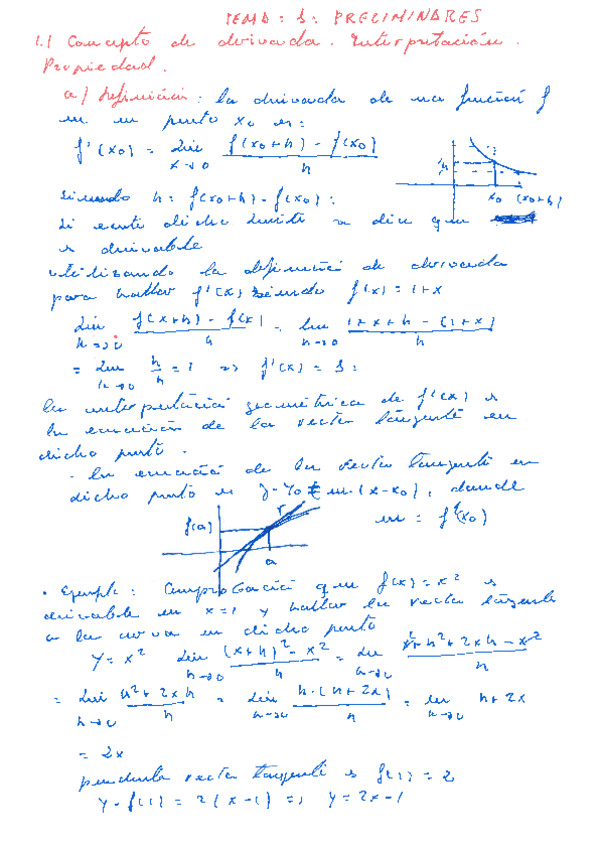 TEMA: 1: PRELIMINARES
1.1 Concepto de derivada. Interpretación.
Propiedad.
a) Definición: la derivada de una función f
en un punto x0 es:
f'(x0) = lim x→0 f(x0+h) - f(x0) / h
siendo h = f(x0+h) - f(x0):
h
x0 (x0+h)
Si existe dicho limite se dice que
es derivable
utilizando la definición de derivada
para hallar f'(x) siendo f(x) = 1+x
lim h→0 f(x+h) - f(x) / h = lim h→0 1+x+h - (1+x) / h
= lim h→0 h/h = 1 => f'(x) = 1:
la interpretación geométrica de f'(x) es
la ecuación de la recta tangente en
dicho punto.
- la ecuación de la recta tangente en
dicho punto es y-y0 = m·(x-x0), donde
m = f'(x0)
f(a)
r
a
• Ejemplo: Comprobación que f(x) = x² es
derivable en x=1 y hallar la recta tangente
a la curva en dicho punto
y = x² lim h→0 (x+h)² - x² / h = lim h→0 x²+h²+2xh-x² / h
= lim h→0 h²+2xh / h = lim h→0 h·(h+2x) / h = lim h→0 h+2x
= 2x
pendiente recta tangente es f(1) = 2
y-f(1) = 2(x-1) => y=2x-1